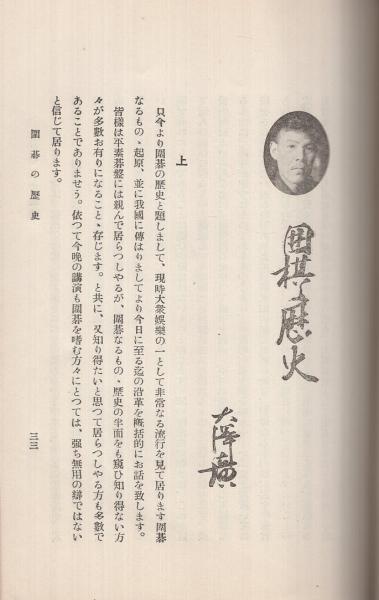 囲棋の歴史
大澤廣
上
只今より圍碁の歷史と題しまして、現時大衆娛樂の一として非常なる流行を見て居ります圍碁
なるものゝ起原、並に我國に傳はりましてより今日に至る迄の沿革を槪括的にお話を致します。
皆樣は平素碁盤には親んで居らつしやるが、圍碁なるものゝ歷史の半面をも窺ひ知り得ない方
々が多數お有りになることゝ存じます。と共に、又知り得たいと思つて居らつしやる方も多數で
あることでありませう。依つて今晩の講演も圍碁を嗜む方々にとつては、强ち無用の辯ではない
と信じて居ります。
圍碁の歷史
三三